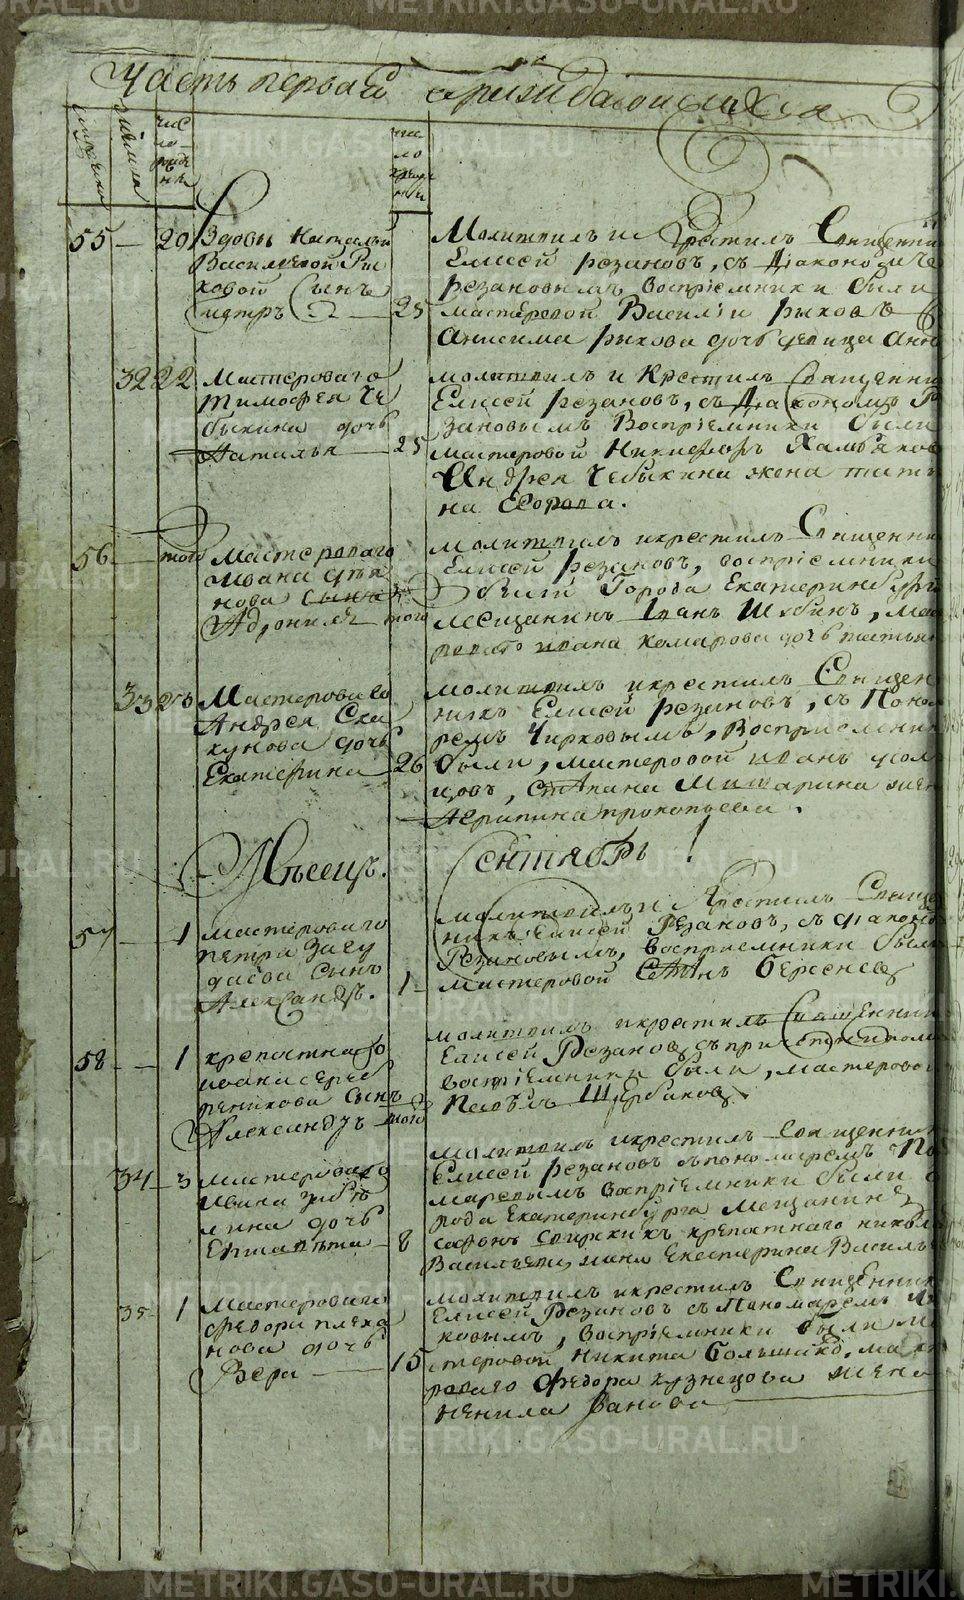 METRIKI.GASO-URAL.RU
Часть первая о раждающихся
мужеска
женска
чис
ло
рожде
ния
чис
ло
креще
ния
55 — 20 Вдовы Натальи
Васильевой Ры
ковой Сынъ
25
Молитвилъ и Крестилъ Священни
Елисей резановъ, съ Дьякономъ
резановымъ восприемники были
мастеровой Василий рыковъ
Анисима рыкова дочь девица Анн
32 22 Мастероваго
Тимофея Че
быкина дочь
Наталья — 25
молитвилъ и Крестилъ Священни
Елисей резановъ, съ Дьякономъ Ре
зановымъ Восприемники были
мастеровой Никифоръ
Андрея Чебыкина жена тать
на Егорова.
56 — того Мастероваго
Ивана
нова сынъ
Адронилъ того
молитвилъ и крестилъ Священни
Елисей резановъ, восприемники
были Города Екатеринбурга
мещанинъ Иванъ Шубинъ, мас
роваго ивана комарова дочь татья
33 25 Мастероваго
Андрея Ска
кунова дочь
Екатерина 26
молитвилъ и крестилъ Священ
никъ Елисей резановъ, съ Поно
ремъ Чирковымъ, Восприемник
были, мастеровой иванъ
цовъ, степана Мишарина жен
Агрипина прокопьева.
Месецъ. Сентябрь
57 — 1 мастероваго
петра Загу
даева Сынъ
Александръ. 1
молитвилъ и Крестилъ Свяще
никъ Елисей Резановъ, съ дьяконо
Резановымъ, восприемники были
мастеровой Степанъ Береневъ
58 — 1 крепостнаго
ивана сереб
реникова сынъ
Александръ того
молитвилъ и крестилъ Священник
Елисей Резановъ съ причетникомъ
восприемники были, мастеровой
Павелъ Щербаковъ
34 — 3 мастероваго
Ивана забе
лина дочь
Елисавета — 8
молитвилъ и крестилъ священни
Елисей резановъ съ пономаремъ По
маревымъ восприемники были
рода Екатеринбурга мещанинъ
крепостнаго
Васильева, жена Екатерина Василье
35 — 1 Мастероваго
федора плеха
нова дочь
Вера — 15
молитвилъ и крестилъ Священник
Елисей Резановъ съ Пономаремъ
ковымъ, восприемники были ма
стеровой Никита большако. мас
роваго Федора кузнецова жена
ненила Панова